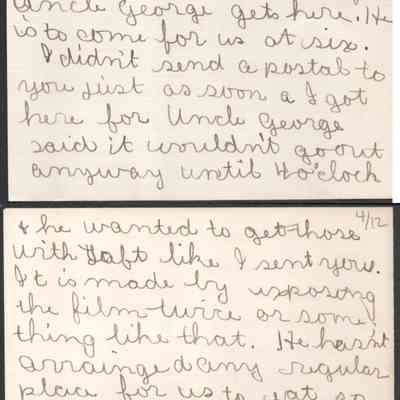 Uncle George gets here. He
is to come for us at six.
I didn't send a postal to
you just as soon a I got
here for Uncle George
said it wouldn't go out
anyway until 4 o'clock
4/12
& he wanted to get those
with Taft like I sent you.
It is made by exposing
the film twice or some
thing like that. He hasn't
arrainged any regular
place for us to eat so